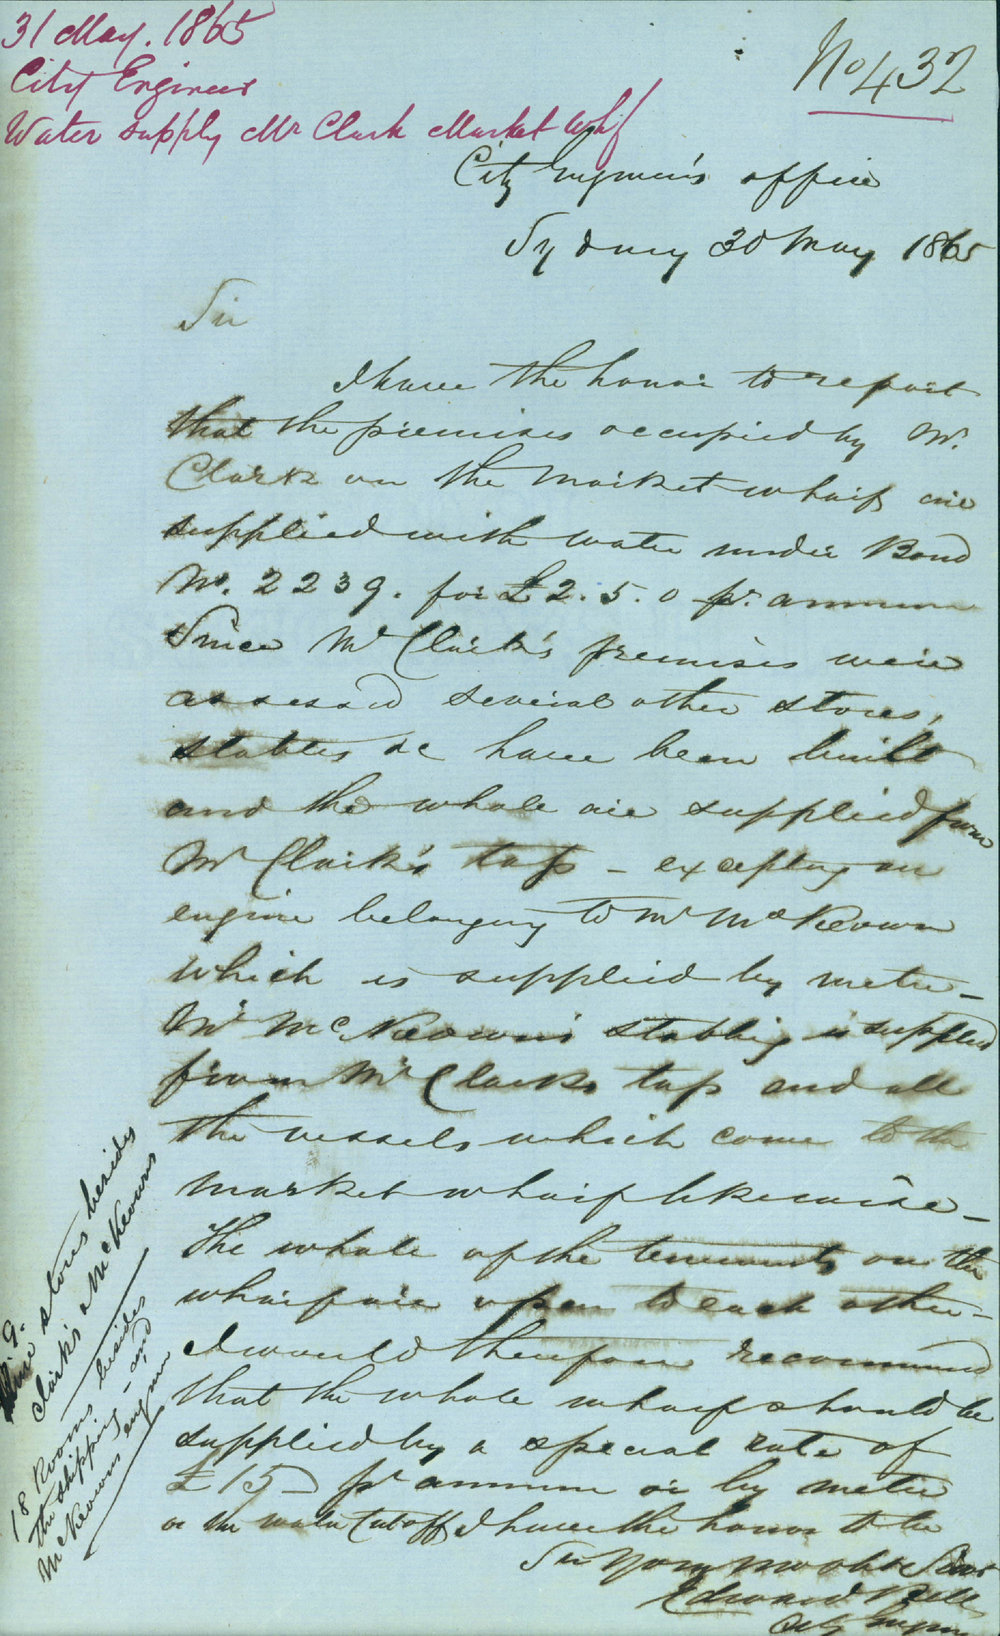 31 May. 1865
City Engineer
Water supply Mr Clark Market Whf
No 432
City Engineer's office
Sydney 30 May 1865
Sir
I have the honor to report
that the premises occupied by Mr.
Clark on the Market wharf are
supplied with water under Bond
No. 2239. for £2.5.0 pr. annum
Since Mr Clark's premises were
assessed several other stores,
stables &c have been built
and the whole are supplied from
Mr Clark's tap – excepting an
engine belonging to Mr McKeown
which is supplied by meter –
Mr McKeown's stabling is supplied
from Mr Clarks tap and all
the vessels which come to the
Market wharf likewise –
The whole of the tenements on the
wharf are open to each other –
I would therefore recommend
that the whole wharf should be
supplied by a special rate of
£15 pr annum or by meter
or the water cut off I have the honor to be
Sir Your most obdt Servt
Edward Bell
City Engineer
9.
Nine stores besides
Clark's & McKeowns
18 Rooms besides
the shipping – and
McKeowns engine